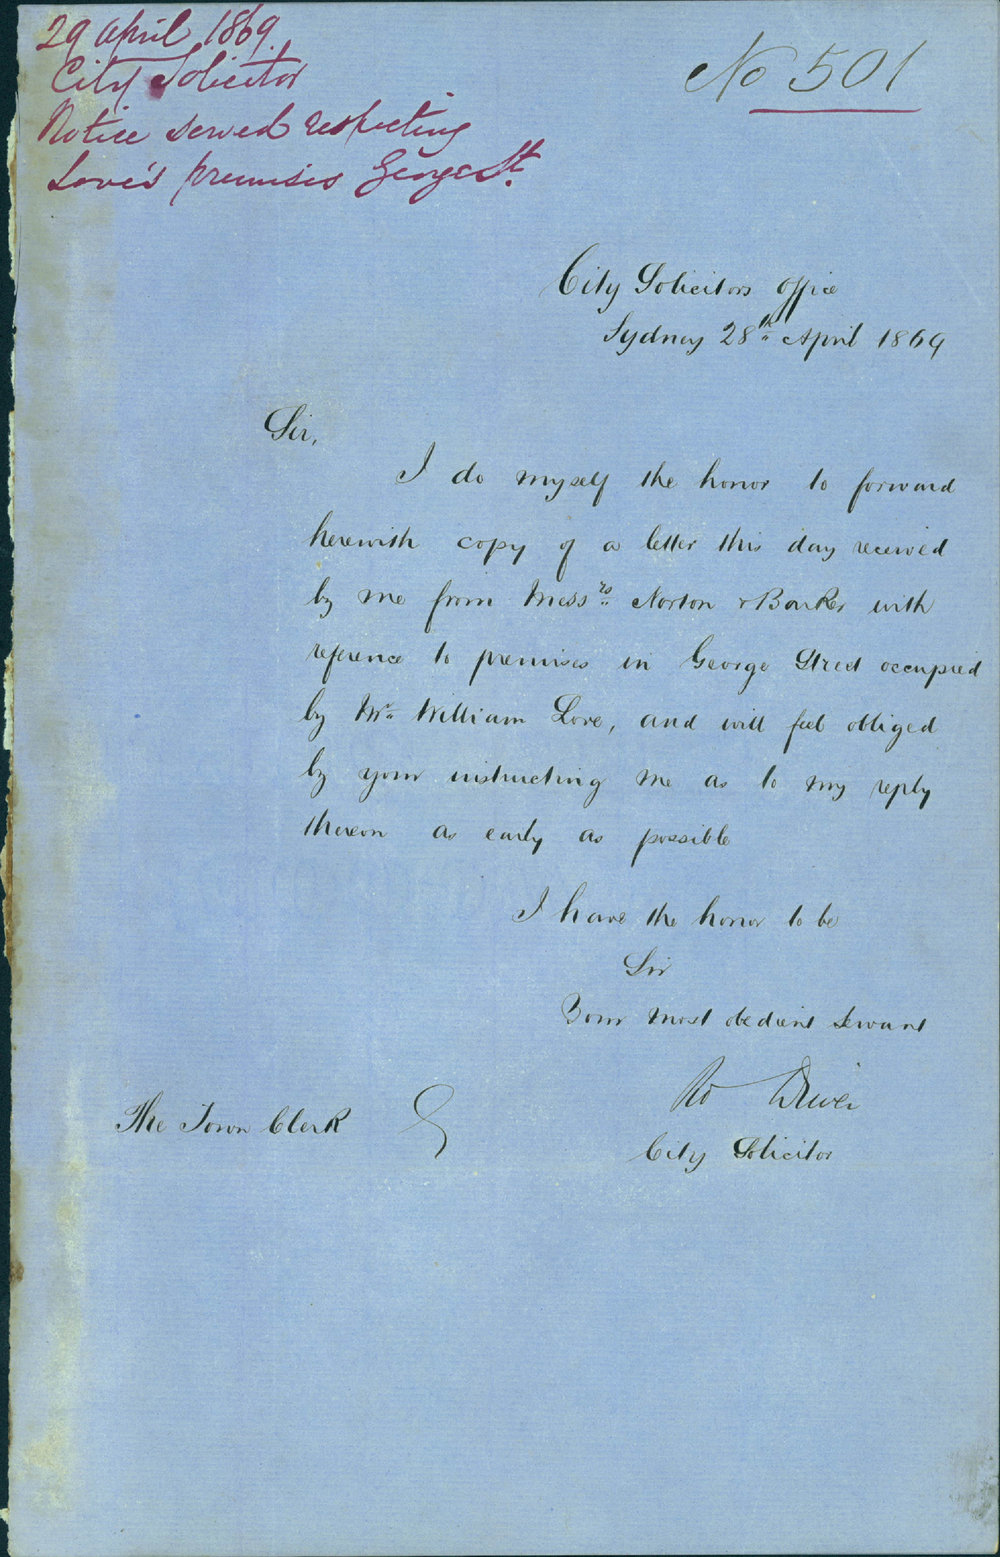 29 April 1869.
City Solicitor
Notice served respecting
Love's premises George St.
No 501
City Solicitors Office
Sydney 28th April 1869
Sir,
I do myself the honor to forward
herewith copy of a letter this day received
by me from Messrs Norton & Barker with
reference to premises in George Street occupied
by Mr William Love, and will feel obliged
by your instructing me as to my reply
thereon as early as possible
I have the honor to be
Sir
Your most obedient servant
Rd Driver
City Solicitor
The Town Clerk